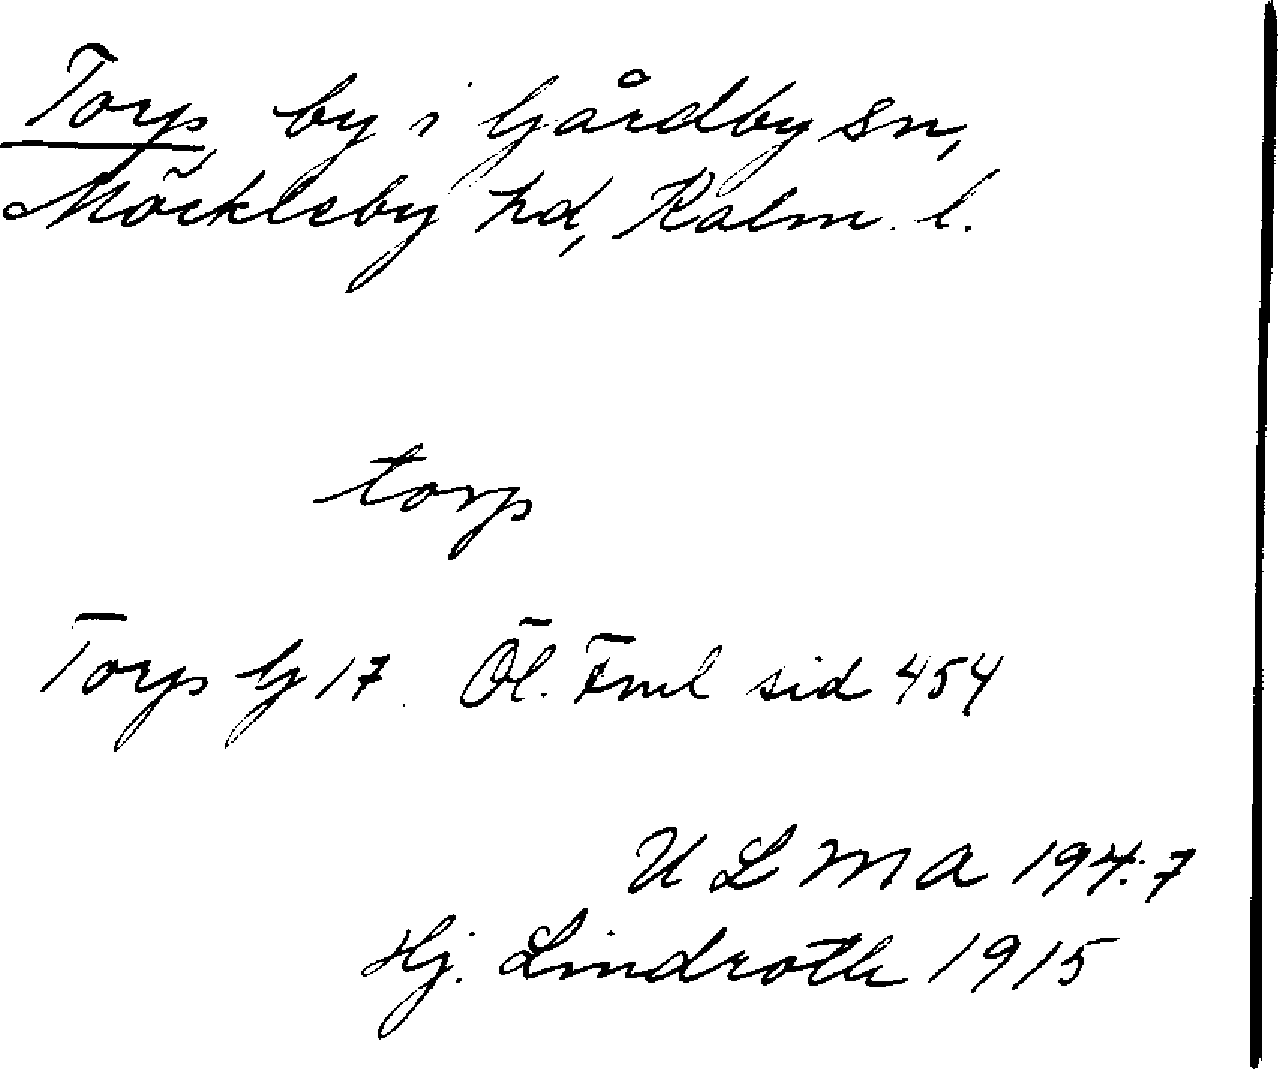 Torp, by i Gårdby sn,
Möckleby hd, Kalm. l.
torp
Torp G 17. Öl. Fml sid 454
U L M A 194:7
Hj. Lindroth 1915